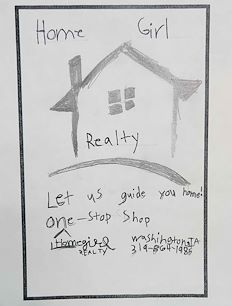 Home Girl
Realty
Let us guide you home!
one-Stop Shop
Homegirl washington IA
REALTY 319-864-1985